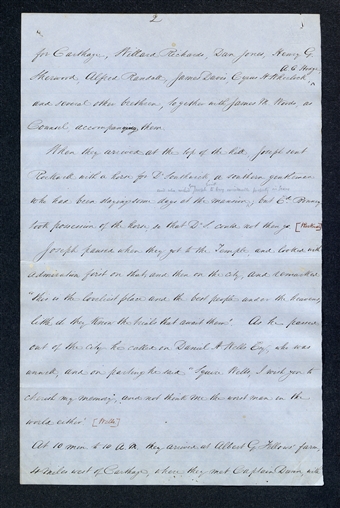 2
for Carthage, Willard Richards, Dan Jones, Henry G.
Sherwood, Alfred Randall, James Davis Cyrus H. Wheelock ^A. C. Hodge
and several other brethren, together with James W. Woods, as
Counsel accompanying them.
When they arrived at the top of the hill, Joseph sent
Rockwell with a horse for Dr Southwick, a southern gentleman
who had been staying some days at the mansion; but
took possession of the horse, so that Dr S. could not then go
Joseph paused when they got to the Temple, and looked with
admiration first on that, and then on the city, and remarked
"this is the loveliest place and the best people under the heavens,
little do they know the trials that await them". As he passed
out of the city he called on Daniel H. Wells Esq, who was
unwell, and on parting he said "Squire Wells, I wish you to
cherish my memory, and not think me the worst man in the
world either" [Wells]
At 10 min. to 10 A.M. they arrived at Albert G. Fellows' farm,
4 miles west of Carthage, where they met Captain Dunn, with